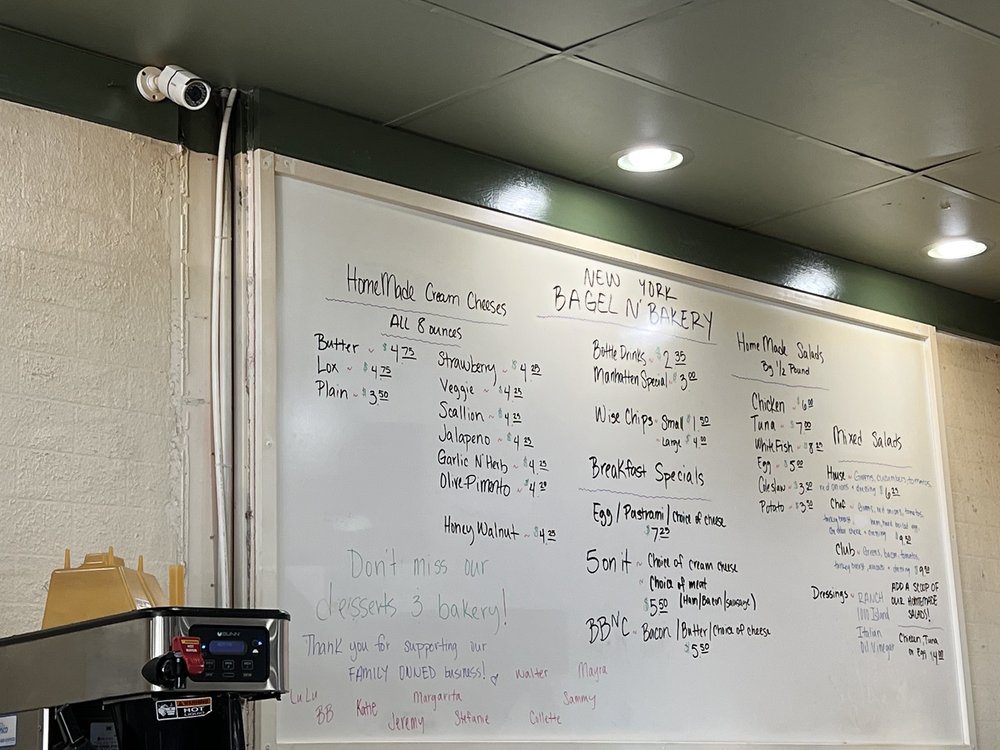 HomeMade Cream Cheeses
All 8 ounces
Butter ~ $4 75
Lox ~ $4 75
Plain ~ $3 50
Strawberry ~ $4 25
Veggie ~ $4 25
Scallion ~ $4 25
Jalapeno ~ $4 25
Garlic N' Herb ~ $4 25
Olive Pimento ~ $4 25
Honey Walnut ~ $4 25
Don't miss our
desserts 3 bakery!
Thank you for supporting our
FAMILY OWNED business!
Walter Mayra
LuLu Margarita Sammy
BB Katie Jeremy Stefanie Collette
NEW YORK
BAGEL N' BAKERY
Bottle Drinks ~ $2 35
Manhatten Special ~ $3 00
Wise Chips ~ Small $1 50
~ Large $4 00
Breakfast Specials
Egg / Pastrami / Choice of cheese
$7 25
5 on it ~ Choice of cream cheese
~ Choice of meat
$5 50 (Ham/Bacon/sausage)
BB N' C ~ Bacon / Butter / Choice of cheese
$5 50
HomeMade Salads
By 1/2 Pound
Chicken ~ $6 00
Tuna ~ $7 00
White Fish ~ $8 25
Egg ~ $5 00
Coleslaw ~ $3 50
Potato ~ $3 50
Mixed Salads
House ~ Greens, cucumbers tomatoes,
red onions + dressing $6 25
Chef ~ Greens, red onions, tomatoes,
turkey breast, ham, hard boiled egg,
cheese + dressing $9 50
Club ~ Greens, bacon, tomatoes,
turkey breast, + dressing $9 50
Dressings ~ RANCH
1000 Island
Italian
Oil Vinegar
ADD A SCOOP OF
OUR HOMEMADE
SALADS!
Chicken, Tuna
or Egg $4 00
BUNN
HOT